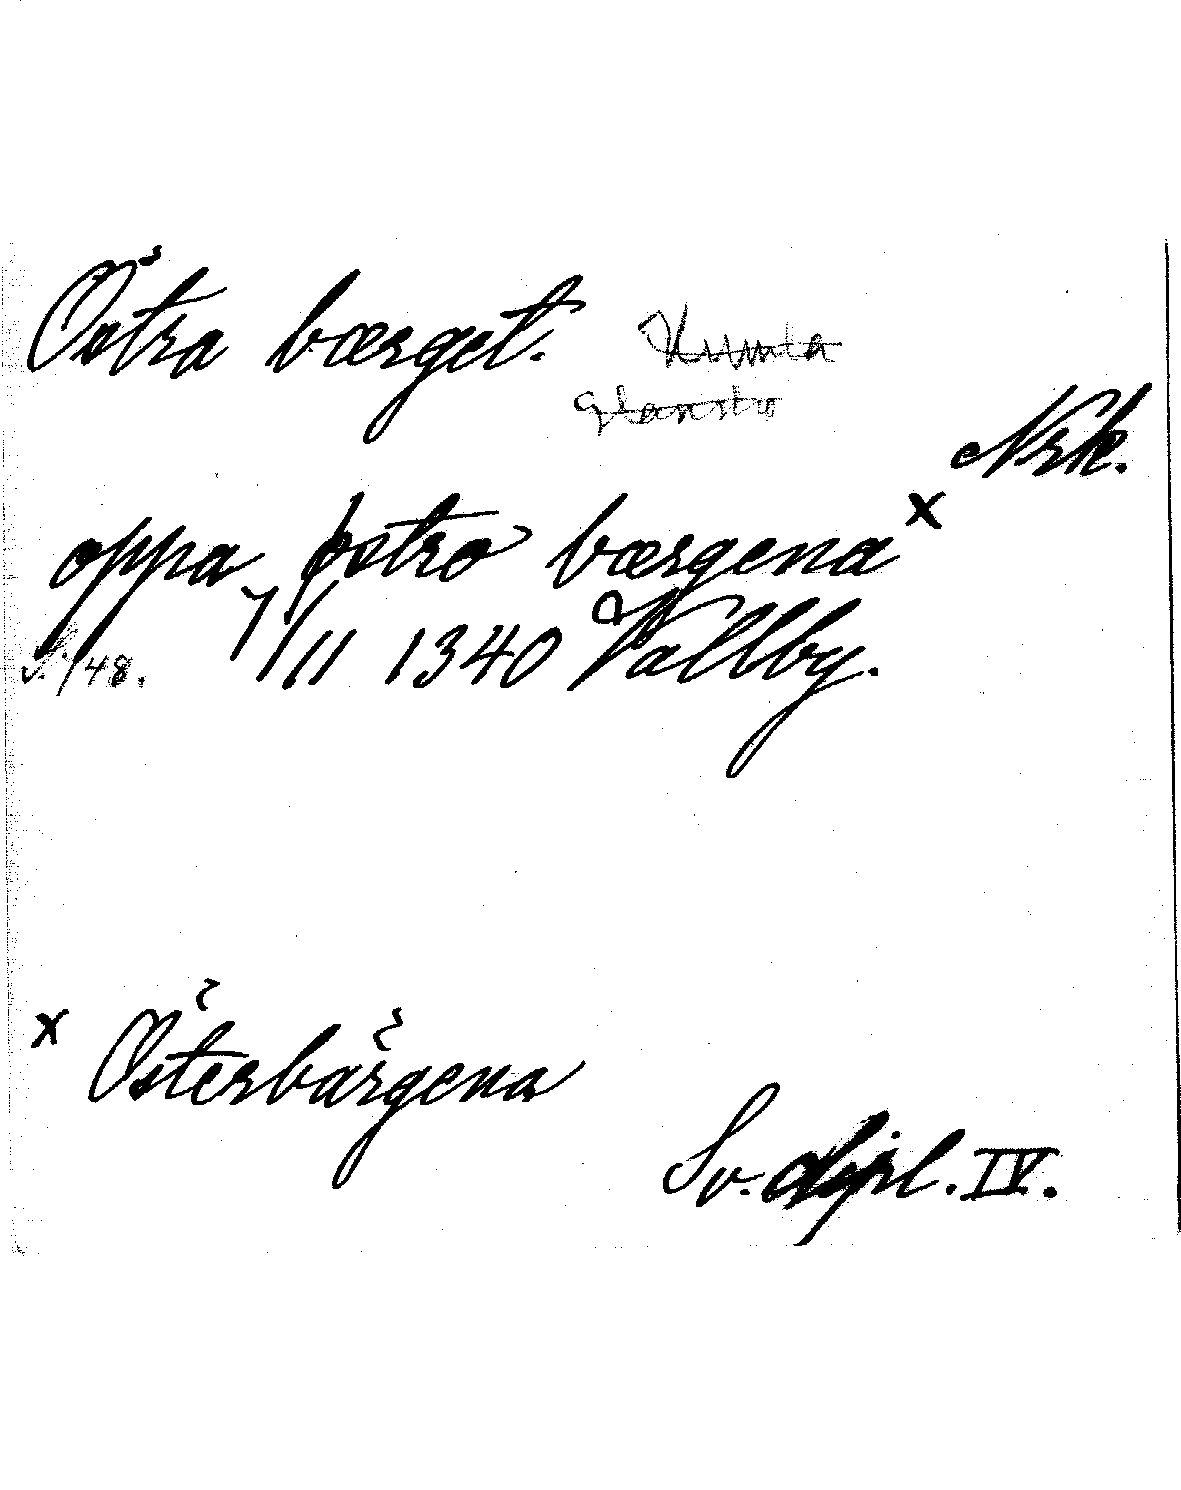 Östra bærget. Kumla
Glanshammar
Nrk.
oppa østro bærgena x
S. 748. 7/11 1340 Vallby.
x Österbärgena
Sv. dipl. IV.